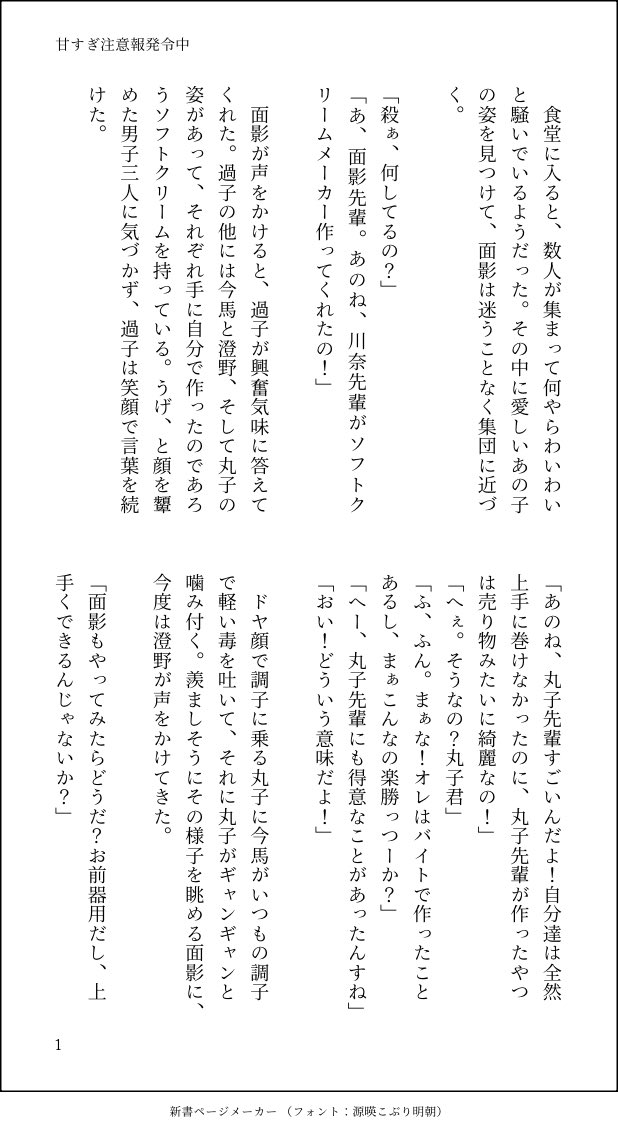 甘すぎ注意報発令中
　食堂に入ると、数人が集まって何やらわいわい
と騒いでいるようだった。その中に愛しいあの子
の姿を見つけて、面影は迷うことなく集団に近づ
く。
「殺ぁ、何してるの？」
「あ、面影先輩。あのね、川奈先輩がソフトク
リームメーカー作ってくれたの！」
　面影が声をかけると、過子が興奮気味に答えて
くれた。過子の他には今馬と澄野、そして丸子の
姿があって、それぞれ手に自分で作ったのであろ
うソフトクリームを持っている。うげ、と顔を顰
めた男子三人に気づかず、過子は笑顔で言葉を続
けた。
「あのね、丸子先輩すごいんだよ！自分達は全然
上手に巻けなかったのに、丸子先輩が作ったやつ
は売り物みたいに綺麗なの！」
「へぇ。そうなの？丸子君」
「ふ、ふん。まぁな！オレはバイトで作ったこと
あるし、まぁこんなの楽勝っつーか？」
「へー、丸子先輩にも得意なことがあったんすね」
「おい！どういう意味だよ！」
　ドヤ顔で調子に乗る丸子に今馬がいつもの調子
で軽い毒を吐いて、それに丸子がギャンギャンと
噛み付く。羨ましそうにその様子を眺める面影に、
今度は澄野が声をかけてきた。
「面影もやってみたらどうだ？お前器用だし、上
手くできるんじゃないか？」
1
新書ページメーカー（フォント：源暎こぶり明朝）